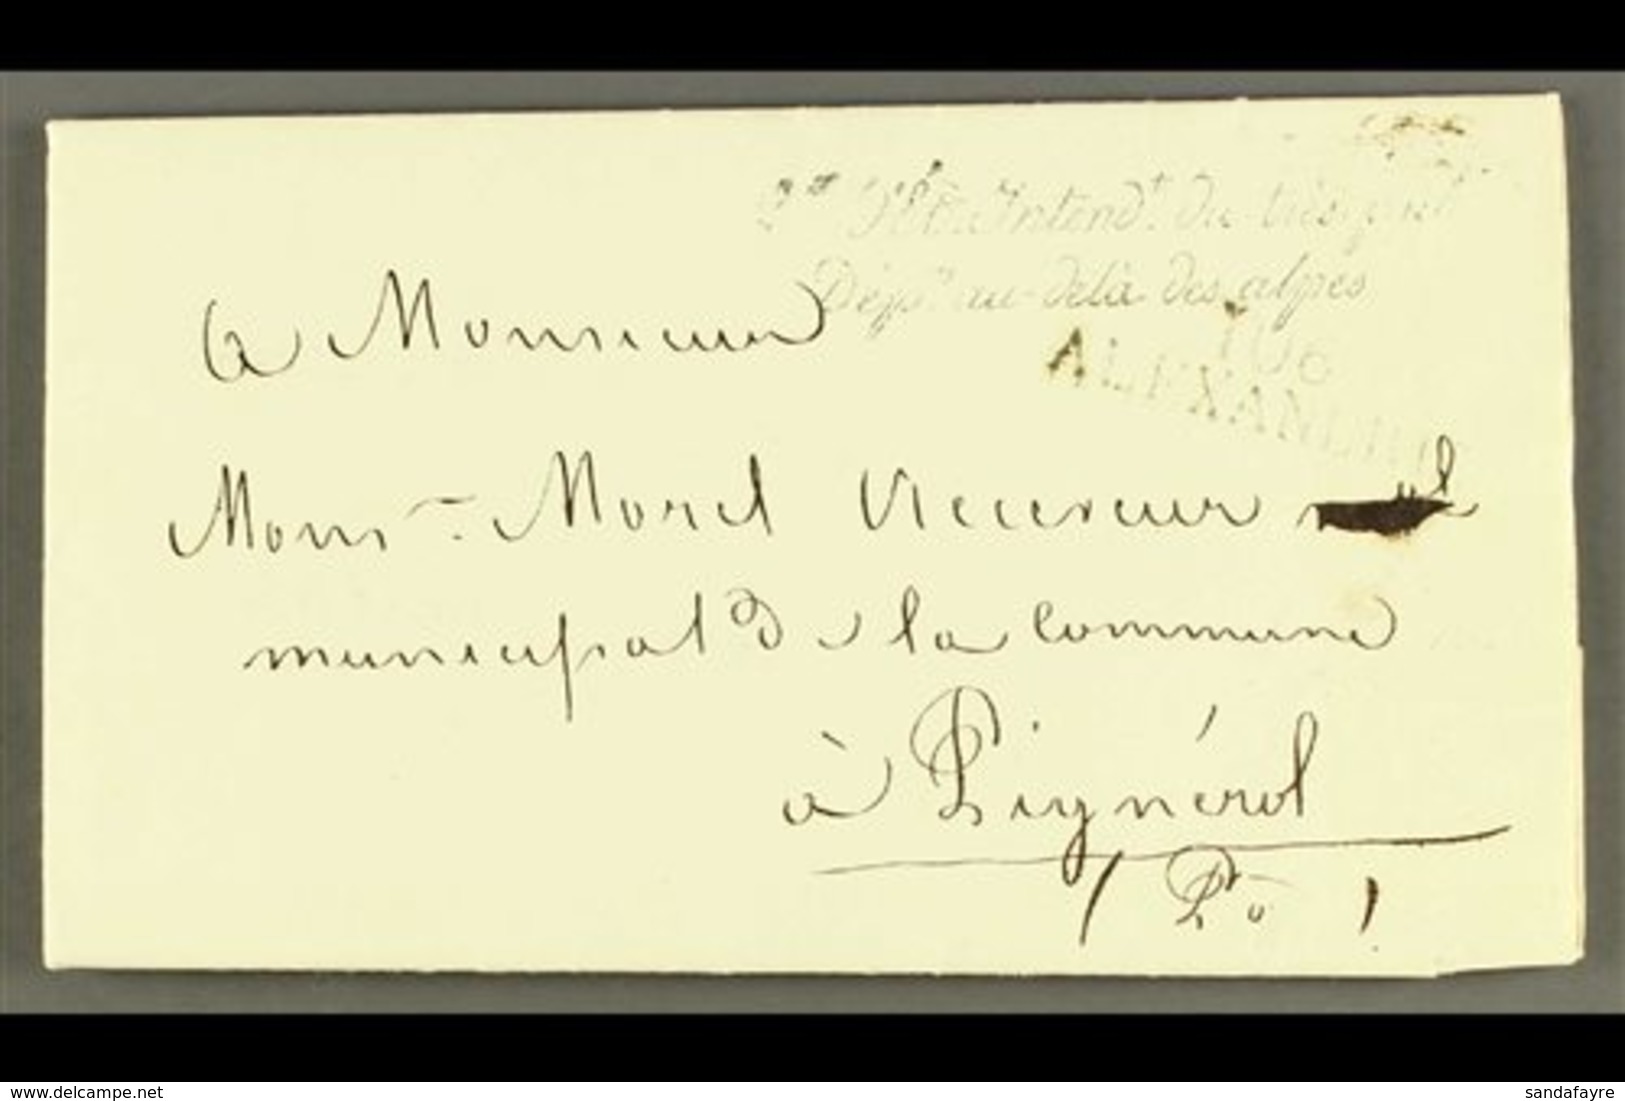 Intend.t du trés. pub.
Dép.ts au-delà des alpes
106
ALEXANDRIE
A Monsieur
Mons.r Morel Receveur
municipal de la Commune
à Pignérol
(Pô)
www.delcampe.net
sandafayre